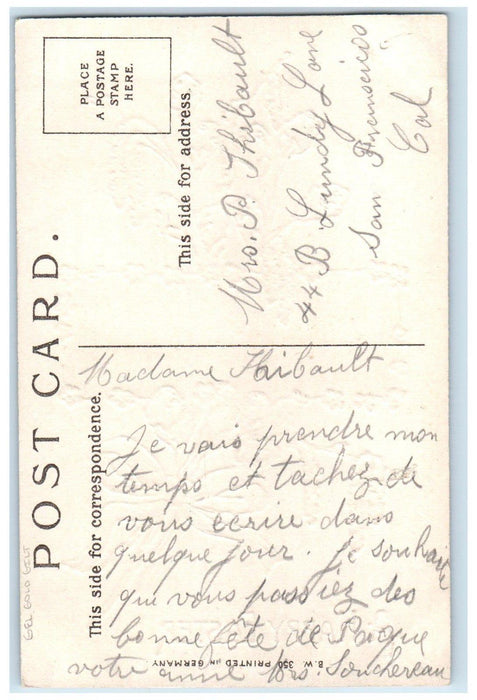 POST CARD.
PLACE
A POSTAGE
STAMP
HERE.
This side for address.
Mrs. P. Thibault
44 B Lundy Lane
San Francisico
Cal
This side for correspondence.
Madame Thibault
Je vais prendre mon
temps et tachez de
vous ecrire dans
quelque jour. Je souhaite
que vous passiez des
bonne fête de Paque
votre amie Mrs. Souchereau
B. W. 350 PRINTED IN GERMANY